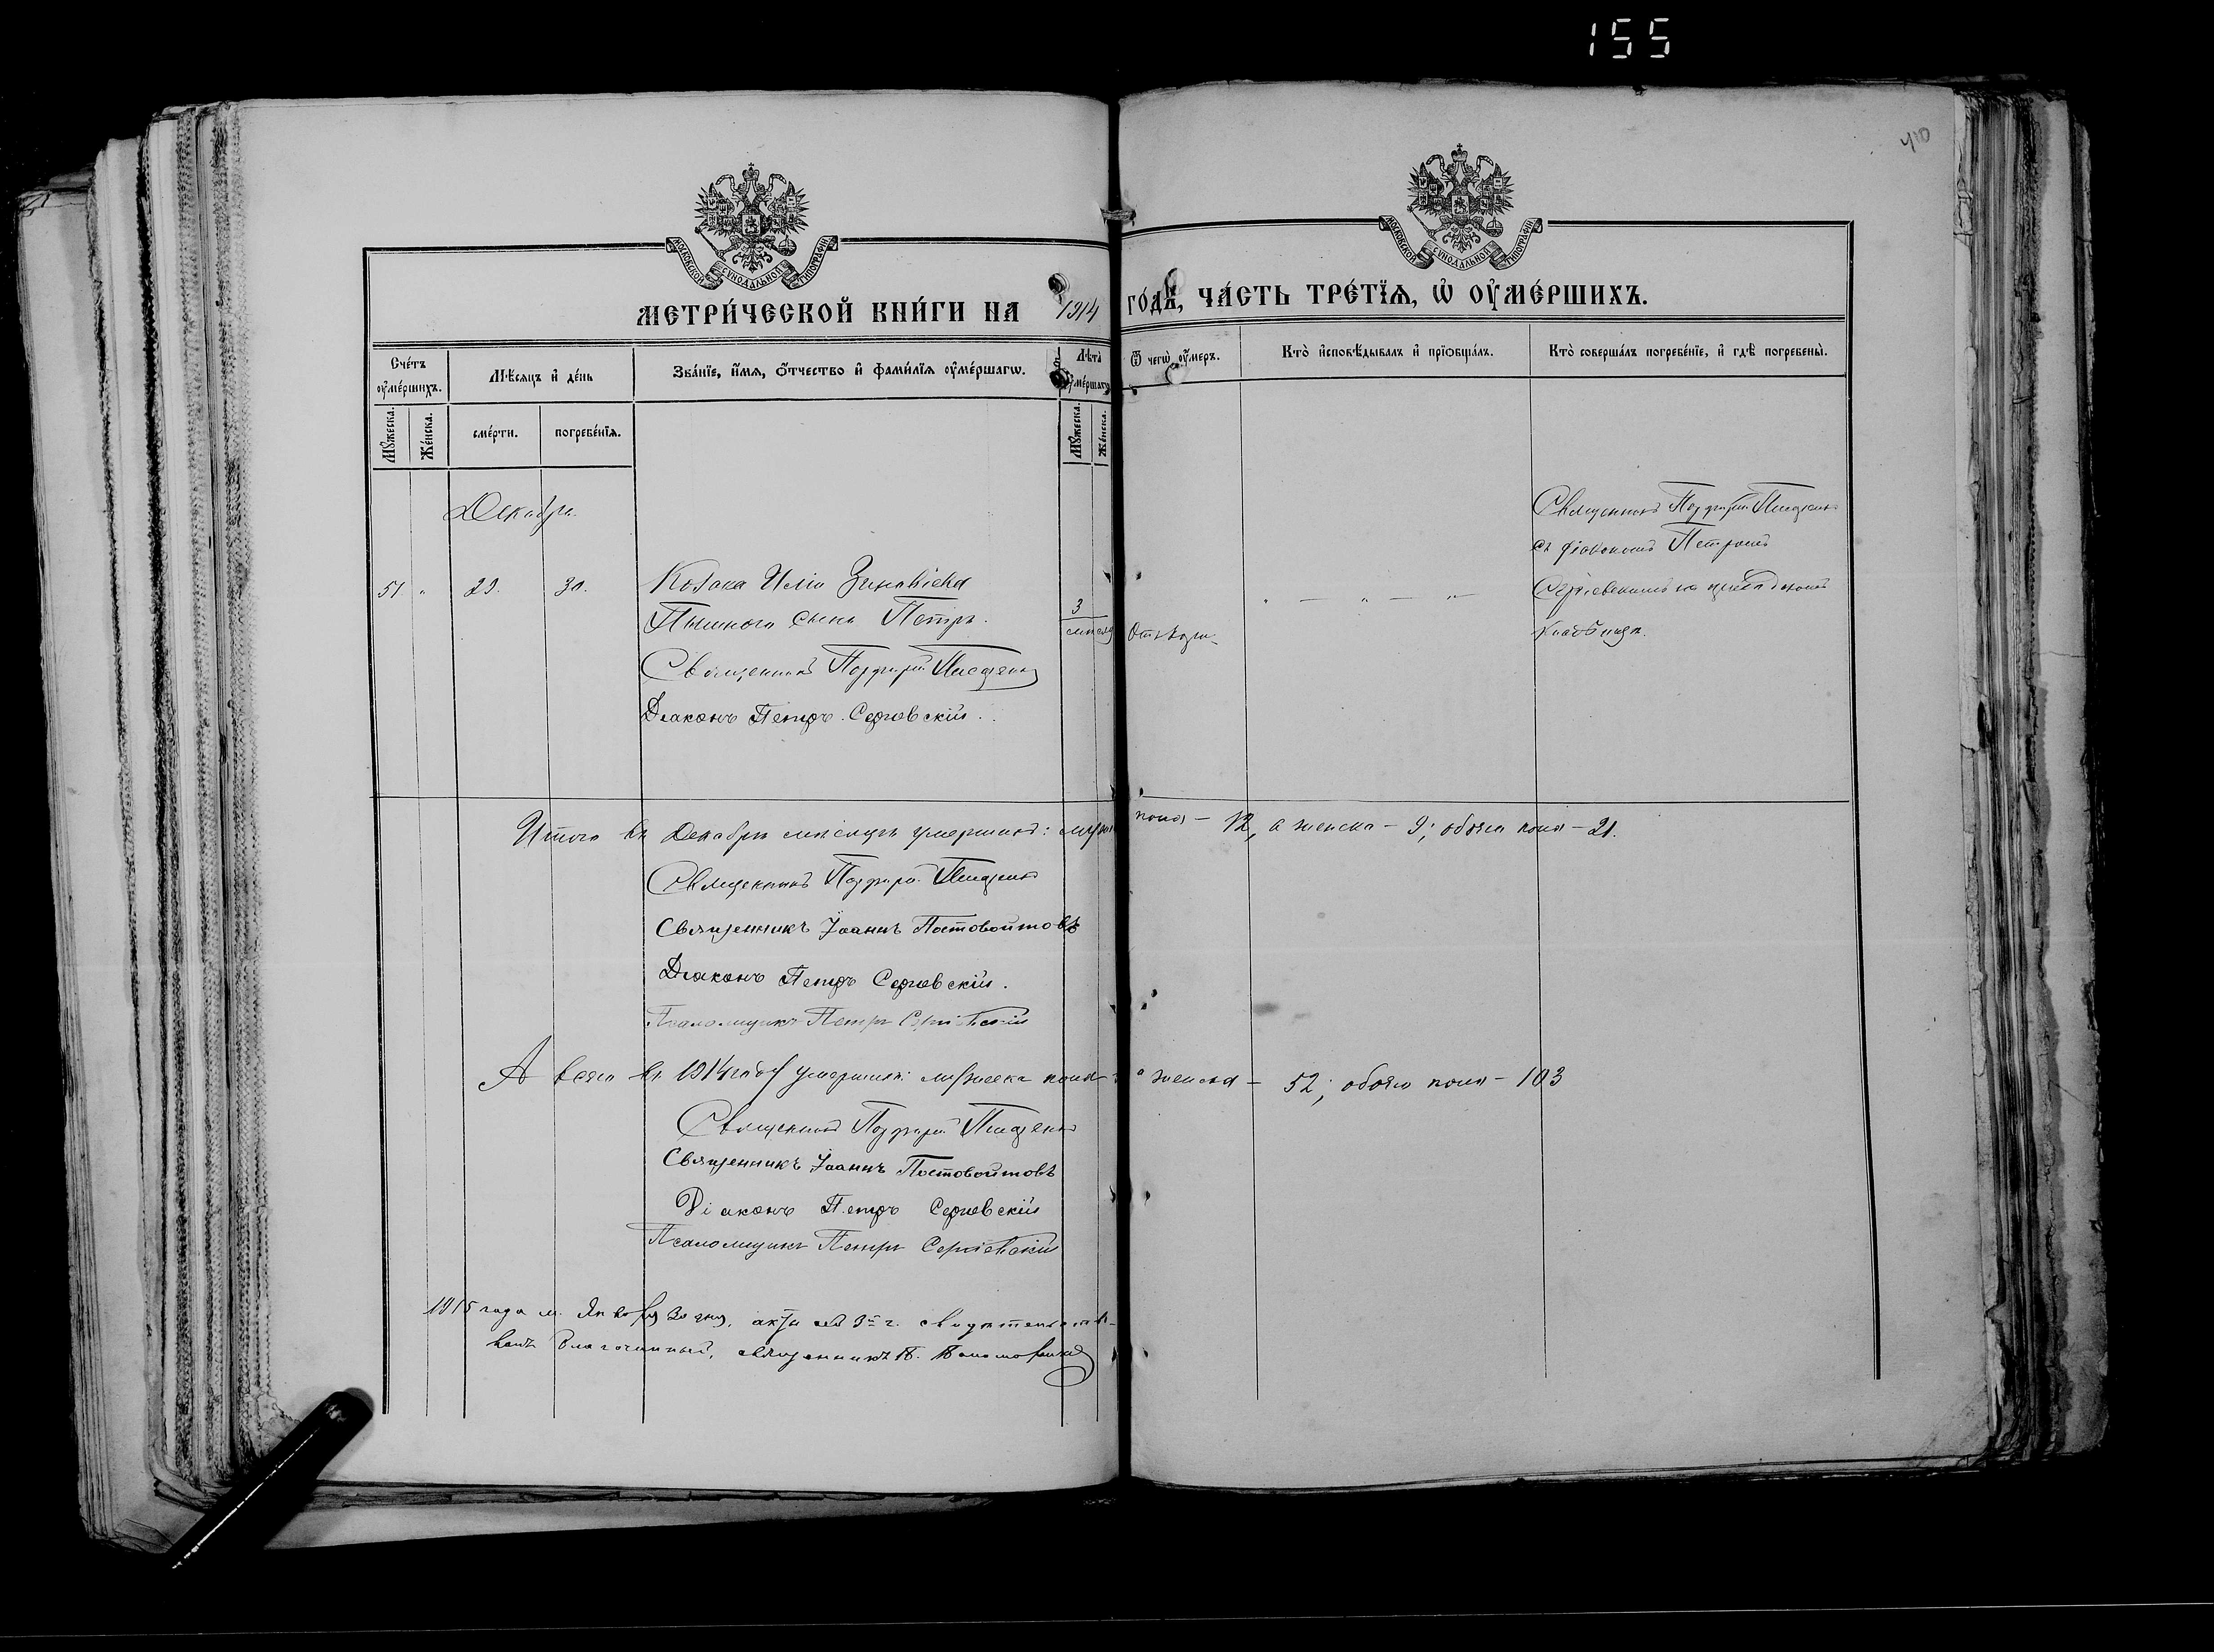 155
410
МОСКОВСКОЙ СѴНОДАЛЬНОЙ ТИПОГРАФІИ
МОСКОВСКОЙ СѴНОДАЛЬНОЙ ТИПОГРАФІИ
МЕТРИ́ЧЕСКОЙ КНИ́ГИ НА 1914 ГО́ДЪ, ЧА́СТЬ ТРЕ́ТЇѦ, Ѡ҆ ОУ҆МЕ́РШИХЪ.
Сче́тъ оу҆ме́ршихъ.
Мꙋ́жеска.
Же́нска.
Мѣ́сяцъ и҆ де́нь
сме́рти.
погребе́нїѧ.
Зва́нїе, и҆́мѧ, ѻ҆́тчество и҆ фами́лїѧ оу҆ме́ршагѡ.
Лѣ́та оу҆ме́ршагѡ
Мꙋ́жеска.
Же́нска.
Ѿ чегѡ̀ оу҆́меръ.
Кто̀ и҆сповѣ́дывалъ и҆ прїѡбща́лъ.
Кто̀ соверша́лъ погребе́нїе, и҆ гдѣ̀ погребены̀.
Декабрь.
51 " 29. 30. Козака Иліи Зиновіева
Пышнаго сынъ Петръ.
3 мѣсяц
Священникъ Порфирій
съ діакономъ Петромъ
Сергіевскимъ на приходскомъ
кладбищѣ.
Священникъ Порфирій
Діаконъ Петръ Сергіевскій.
Итого въ Декабрѣ мѣсяцѣ умершихъ: муж пола – 12, а женска – 9; обоего пола – 21.
Священникъ Порфирій
Священникъ Іоаннъ Постовойтовъ
Діаконъ Петръ Сергіевскій.
Псаломщикъ Петръ Сергіевскій
А всего въ 1914 году умершихъ: мужеска пола а женска – 52; обоего пола – 103
Священникъ Порфирій
Священникъ Іоаннъ Постовойтовъ
Діаконъ Петръ Сергіевскій
Псаломщикъ Петръ Сергіевскій
1915 года м. Января 30 дня, свидѣтельство-
валъ Благочинный, священникъ П.